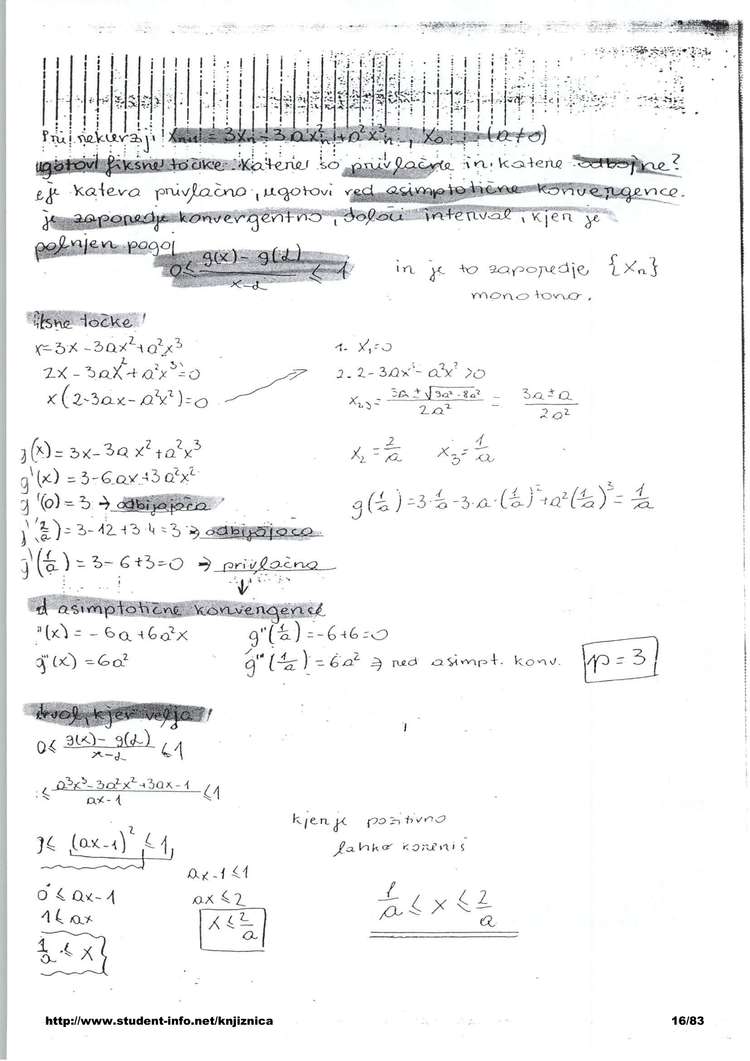 Pri rekurziji Xn+1 = 3Xn - 3axn² + a²xn³, X0 ... (a≠0)
ugotovi fiksne točke. Katere so privlačne in katere odbojne?
eje katera privlačna, ugotovi red asimptotične konvergence.
je zaporedje konvergentno, določi interval, kjer je
polnjen pogoj
0 ≤ g(x) - g(α) / x-α ≤ 1 in je to zaporedje {Xn}
monotono.
iksne točke!
x=3x - 3ax² + a²x³
1. X1=0
2x - 3ax² + a²x³=0
2. 2 - 3ax - a²x² >0
x(2-3ax - a²x²)=0
X2,3 = 3a ± √9a² - 8a² / 2a² = 3a ± a / 2a²
g(x) = 3x - 3ax² + a²x³
X2 = 2/a X3 = 1/a
g'(x) = 3 - 6ax + 3a²x²
g'(0) = 3 → odbijajoča
g(1/a) = 3·1/a - 3·a·(1/a)² + a²(1/a)³ = 1/a
g'(2/a) = 3 - 12 + 3·4 = 3 ⇒ odbijajoča
g'(1/a) = 3 - 6 + 3 = 0 ⇒ privlačna
↓
d asimptotične konvergence
"(x) = -6a + 6a²x g"(1/a) = -6+6=0
g'''(x) = 6a² g'''(1/a) = 6a² ⇒ red asimpt. konv. p = 3
kjer velja!
0 ≤ g(x) - g(α) / x-α ≤ 1
≤ a³x³ - 3a²x² + 3ax - 1 / ax-1 ≤ 1
kjer je pozitivno
≤ (ax-1)² ≤ 1,
lahko koreniš
ax-1 ≤ 1
0 ≤ ax-1 ax ≤ 2
1/a ≤ x ≤ 2/a
1 ≤ ax x ≤ 2/a
1/a ≤ x
http://www.student-info.net/knjiznica 16/83